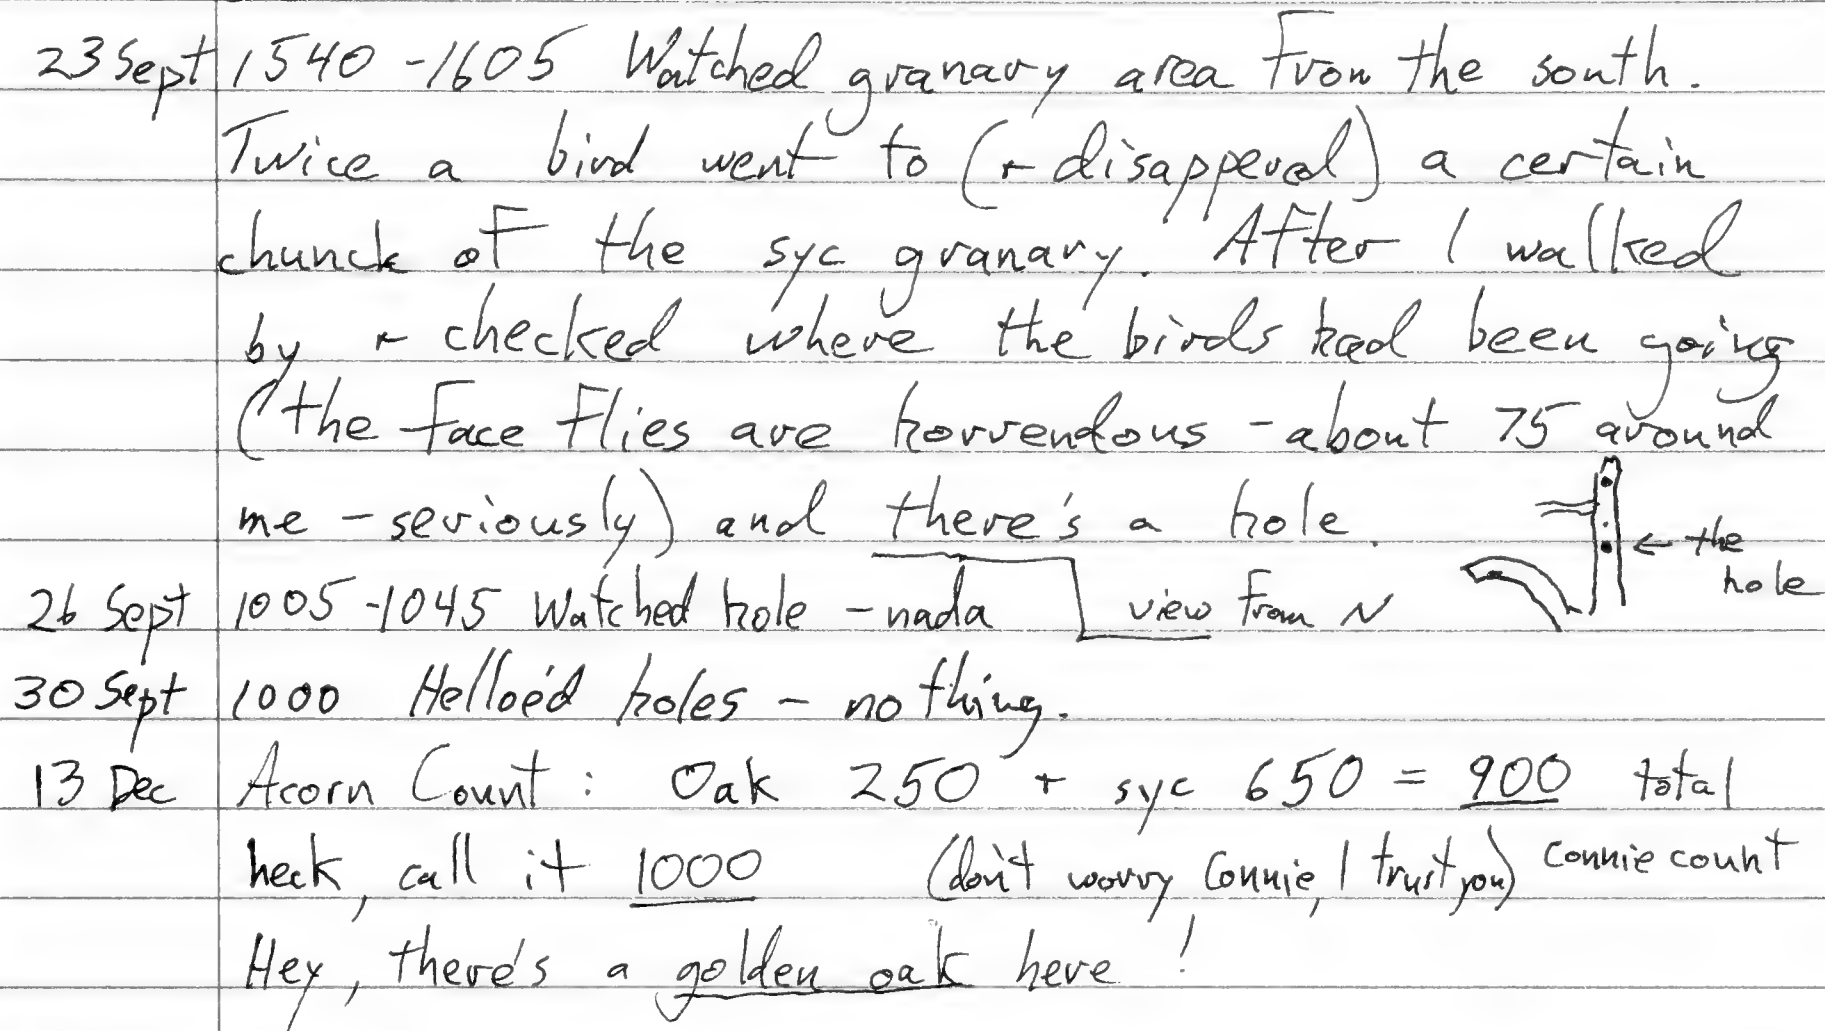 23 Sept 1540 - 1605 Watched granary area from the south.
Twice a bird went to (+ disappered) a certain
chunck of the syc granary. After I walked
by + checked where the birds had been going
(the face flies are horrendous - about 75 around
me - seriously) and there's a hole.
← the
hole
26 Sept 1005 - 1045 Watched hole - nada view from N
30 Sept 1000 Helloed holes - nothing.
13 Dec Acorn Count : Oak 250 + syc 650 = 900 total
heck, call it 1000 (don't worry Connie, I trust you) Connie count
Hey, there's a golden oak here !